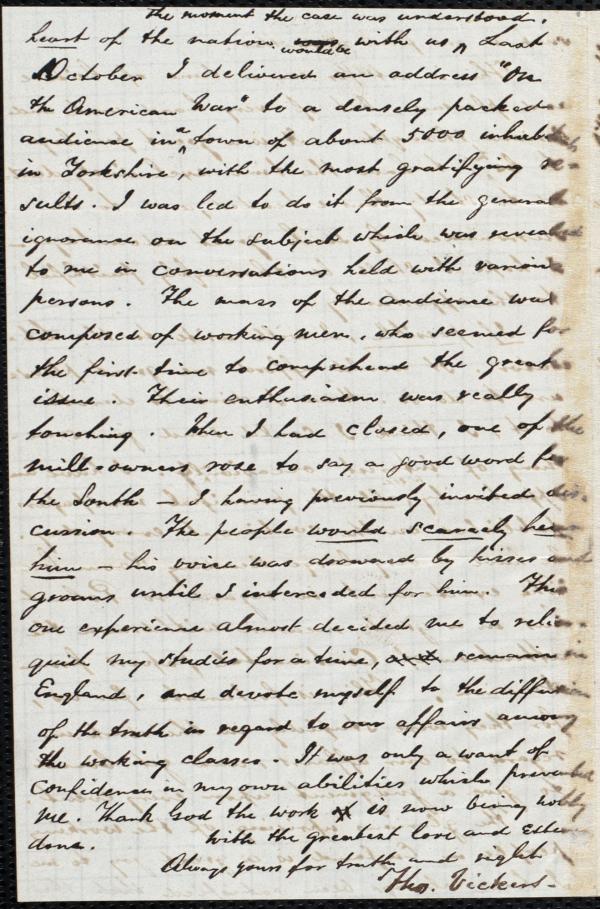 the moment the case was understood.
heart of the nation would be with us. Last
October I delivered an address "On
the American War" to a densely packed
audience in a town of about 5000 inhabitants
in Yorkshire, with the most gratifying re-
sults. I was led to do it from the general
ignorance on the subject which was revealed
to me in conversations held with various
persons. The mass of the audience was
composed of working men, who seemed for
the first time to comprehend the great
issue. Their enthusiasm was really
touching. When I had closed, one of the
mill-owners rose to say a good word for
the South — I having previously invited dis-
cussion. The people would scarcely hear
him — his voice was drowned by hisses and
groans until I interceded for him. This
one experience almost decided me to relin-
quish my studies for a time, remain in
England, and devote myself to the diffusion
of the truth in regard to our affairs among
the working classes. It was only a want of
confidence in my own abilities which prevented
me. Thank God the work is now being nobly
done. With the greatest love and esteem
Always yours for truth and right
Thos. Vickers.